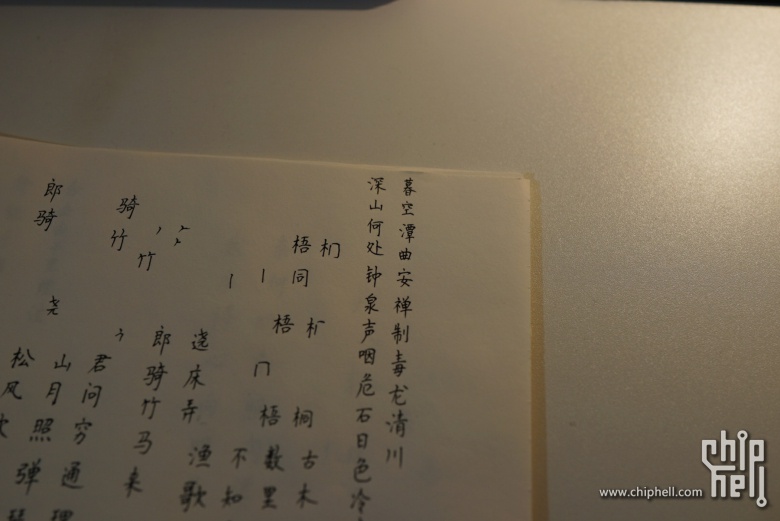 暮空潭曲安禅制毒龙清川
深山何处钟泉声咽危石日色冷
桐古木
梧同梧数里
不知
绕床弄渔歌
骑竹
郎骑竹马来
君问穷通理
郎骑
尧
山月照弹
松风吹
chip hell
www.chiphell.com